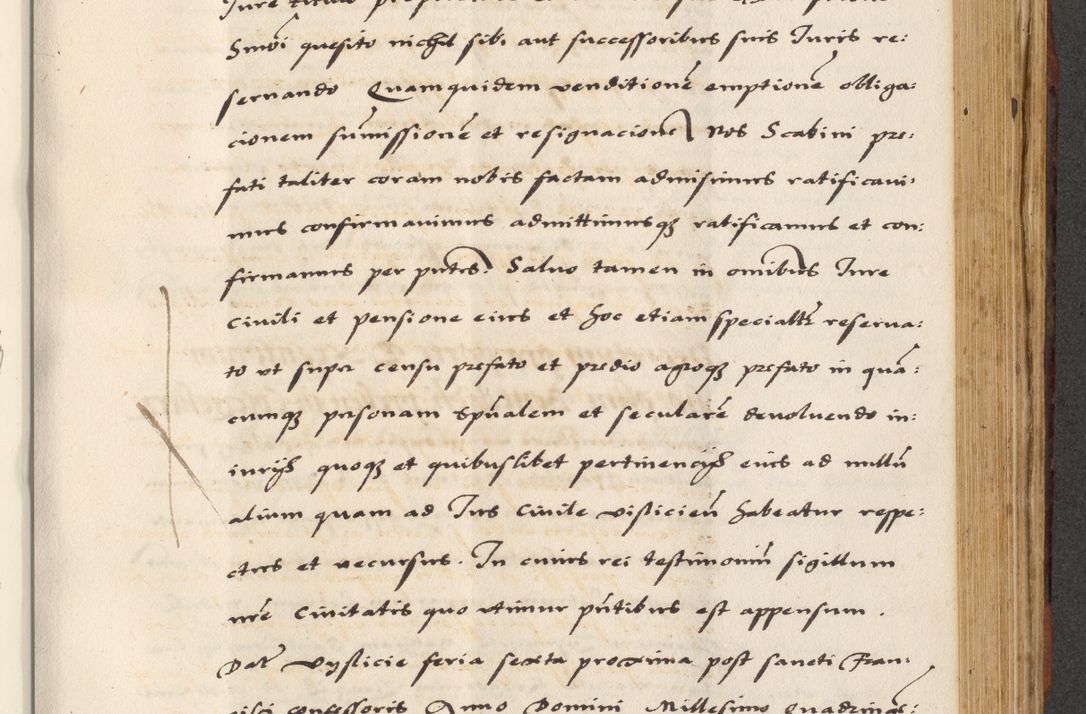 Smōi quesito nichil sibi aut successoribus suis Iuris re:
seruando Quamquidem venditionē emptionē obliga:
cionem sūmissionē et resignacionē Nos Scabini pre:
fati taliter coram nobis factam admisimus ratificaui:
mus confirmauimus admittimusqꝫ ratificamus et con:
firmamus per pn̄tes. Saluo tamen in om̄ibus Iure
Ciuili et pensione eius et hoc etiam specialtr̄ reserua:
to vt super censu prefato et predio agroqꝫ prefato in quā:
cumqꝫ personam sp̄ualem et secularē deuoluendo in:
iurijs quoqꝫ et quibuslibet pertinencijs eius ad nullū
alium quam ad Ius Ciuile visliciēn habeatur respe:
ctus et recursus. In cuius rei testimoniū sigillum
nr̄e Ciuitatis quo vtimur pn̄tibus est appensum.
Dat̄ Vyslicie feria sexta proxima post sancti Fran:
cisci confessoris Anno Domini Millesimo Quadringēs: